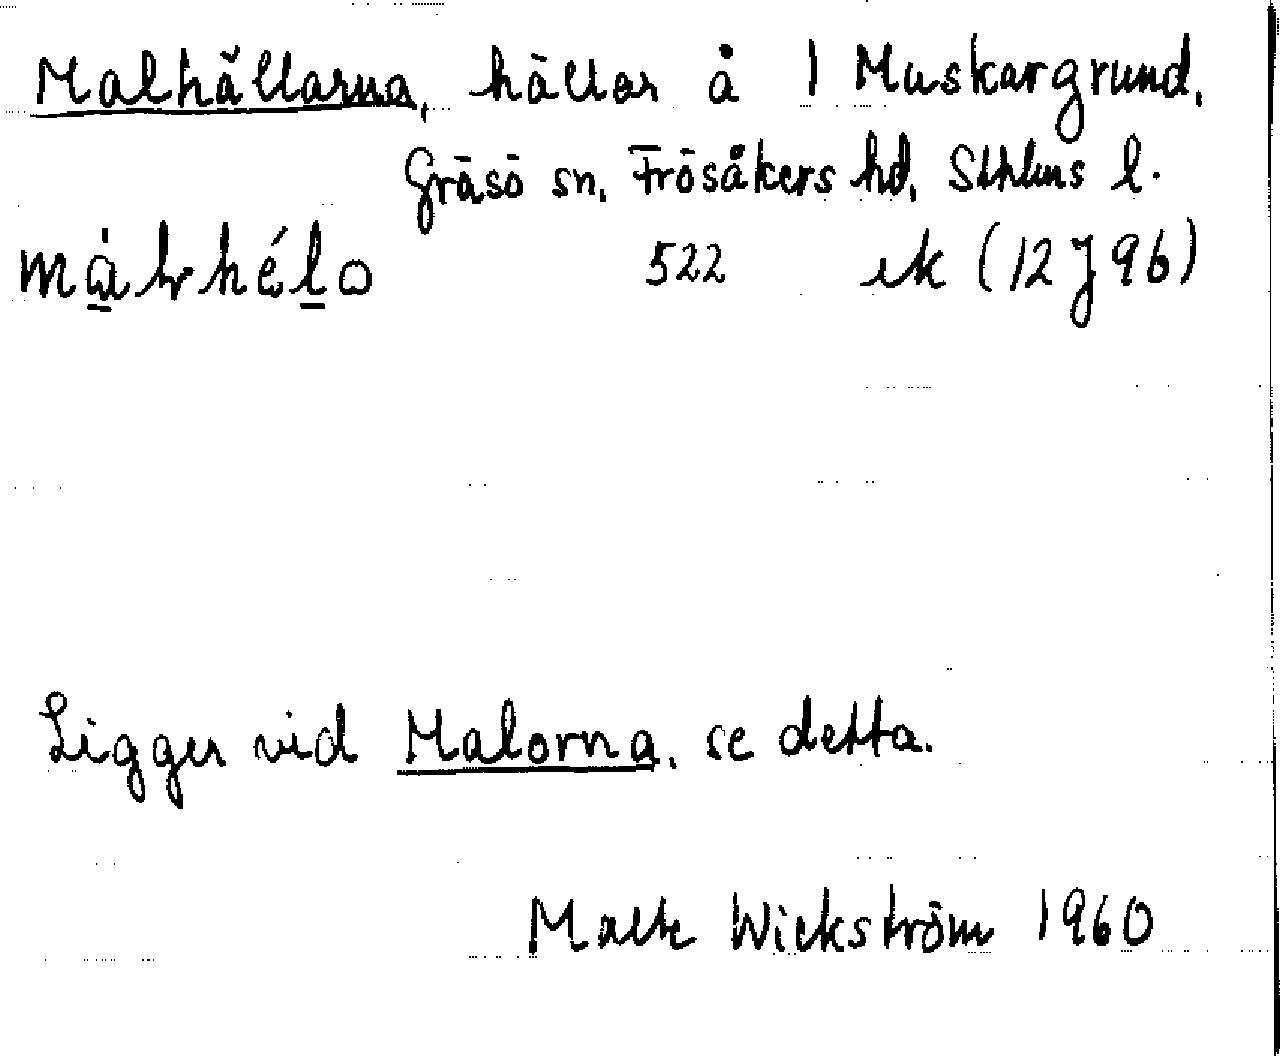 Malhällarna, hällar å 1 Muskargrund,
Gräsö sn, Frösåkers hd, Sthlms l.
522 ek (12J96)
Ligger vid Malorna, se detta.
Malte Wickström 1960